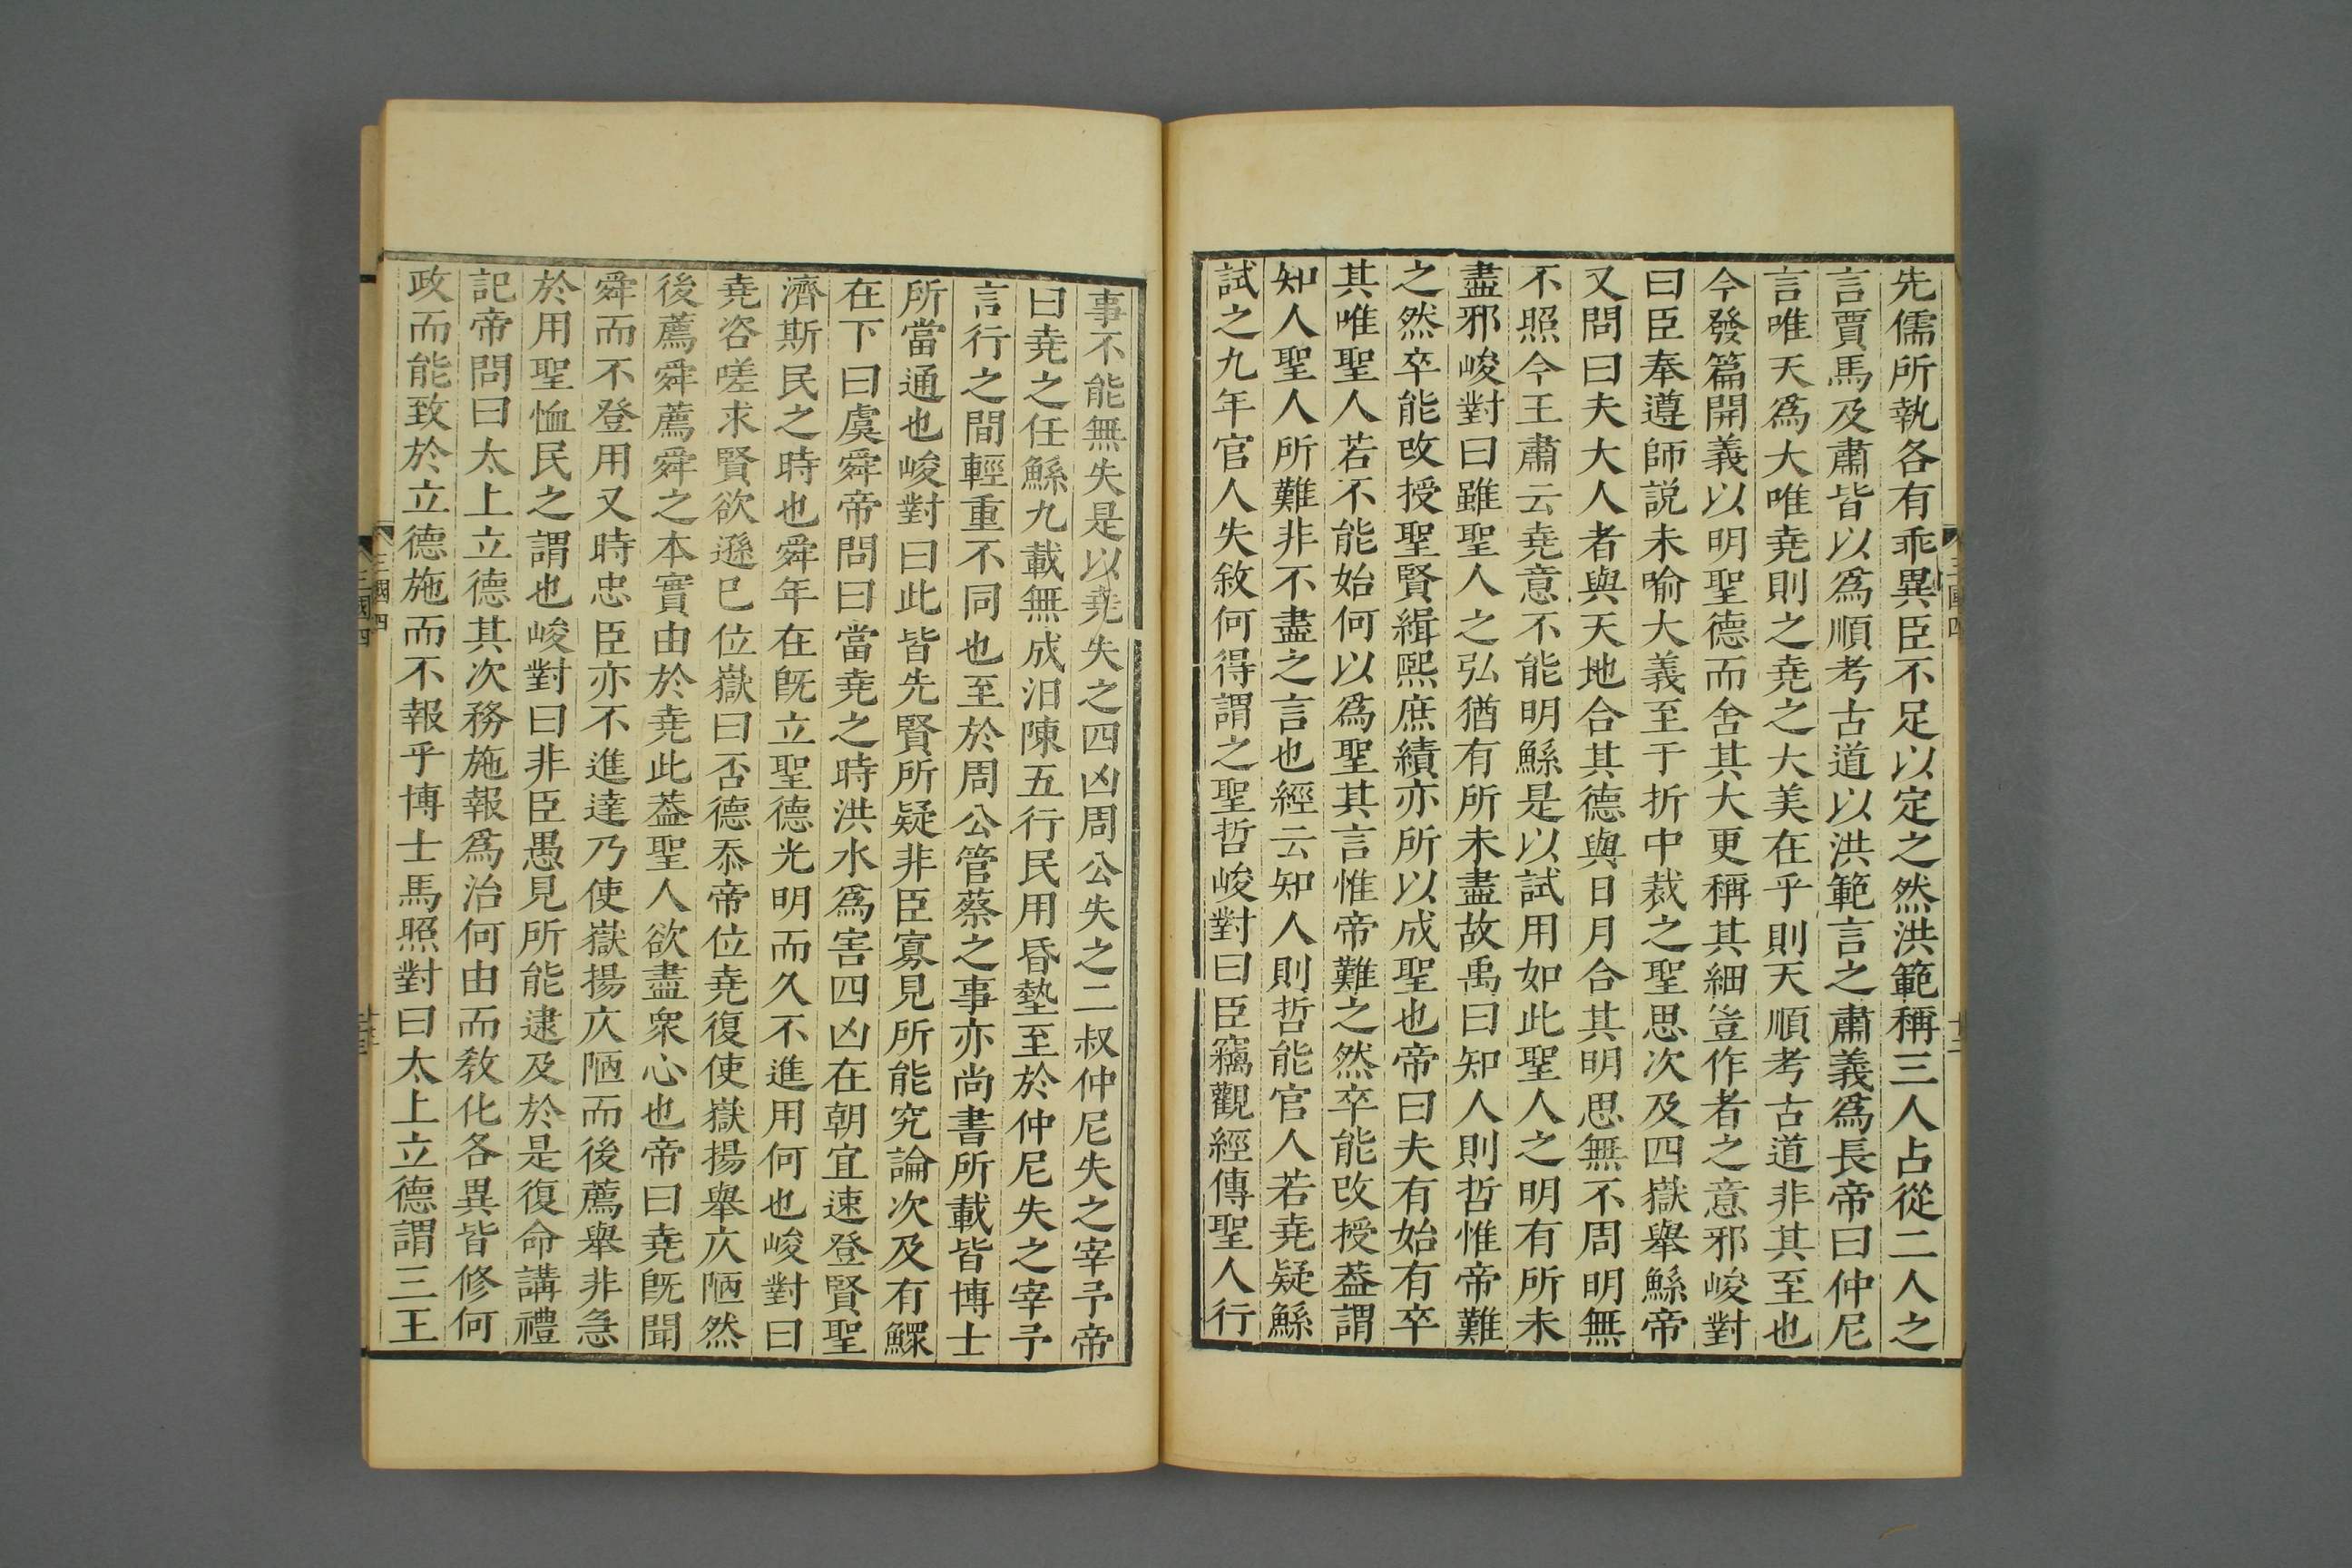 先儒所執各有乖異臣不足以定之然洪範稱三人占從二人之
言賈馬及肅皆以爲順考古道以洪範言之肅義爲長帝曰仲尼
言唯天爲大唯堯則之堯之大美在乎則天順考古道非其至也
今發篇開義以明聖德而舍其大更稱其細豈作者之意邪峻對
曰臣奉遵師説未喻大義至于折中裁之聖思次及四嶽舉鯀帝
又問曰夫大人者與天地合其德與日月合其明思無不周明無
不照今王肅云堯意不能明鯀是以試用如此聖人之明有所未
盡邪峻對曰雖聖人之弘猶有所未盡故禹曰知人則哲惟帝難
之然卒能改授聖賢緝熙庶績亦所以成聖也帝曰夫有始有卒
其唯聖人若不能始何以爲聖其言惟帝難之然卒能改授葢謂
知人聖人所難非不盡之言也經云知人則哲能官人若堯疑鯀
試之九年官人失敘何得謂之聖哲峻對曰臣竊觀經傳聖人行
事不能無失是以堯失之四凶周公失之二叔仲尼失之宰予帝
曰堯之任鯀九載無成汨陳五行民用昏墊至於仲尼失之宰予
言行之間輕重不同也至於周公管蔡之事亦尚書所載皆博士
所當通也峻對曰此皆先賢所疑非臣寡見所能究論次及有鰥
在下曰虞舜帝問曰當堯之時洪水爲害四凶在朝宜速登賢聖
濟斯民之時也舜年在旣立聖德光明而久不進用何也峻對曰
堯咨嗟求賢欲遜已位嶽曰否德忝帝位堯復使嶽揚舉仄陋然
後薦舜薦舜之本實由於堯此葢聖人欲盡衆心也帝曰堯旣聞
舜而不登用又時忠臣亦不進達乃使嶽揚仄陋而後薦舉非急
於用聖恤民之謂也峻對曰非臣愚見所能逮及於是復命講禮
記帝問曰太上立德其次務施報爲治何由而敎化各異皆修何
政而能致於立德施而不報乎博士馬照對曰太上立德謂三王
三國四
三國四
三國四